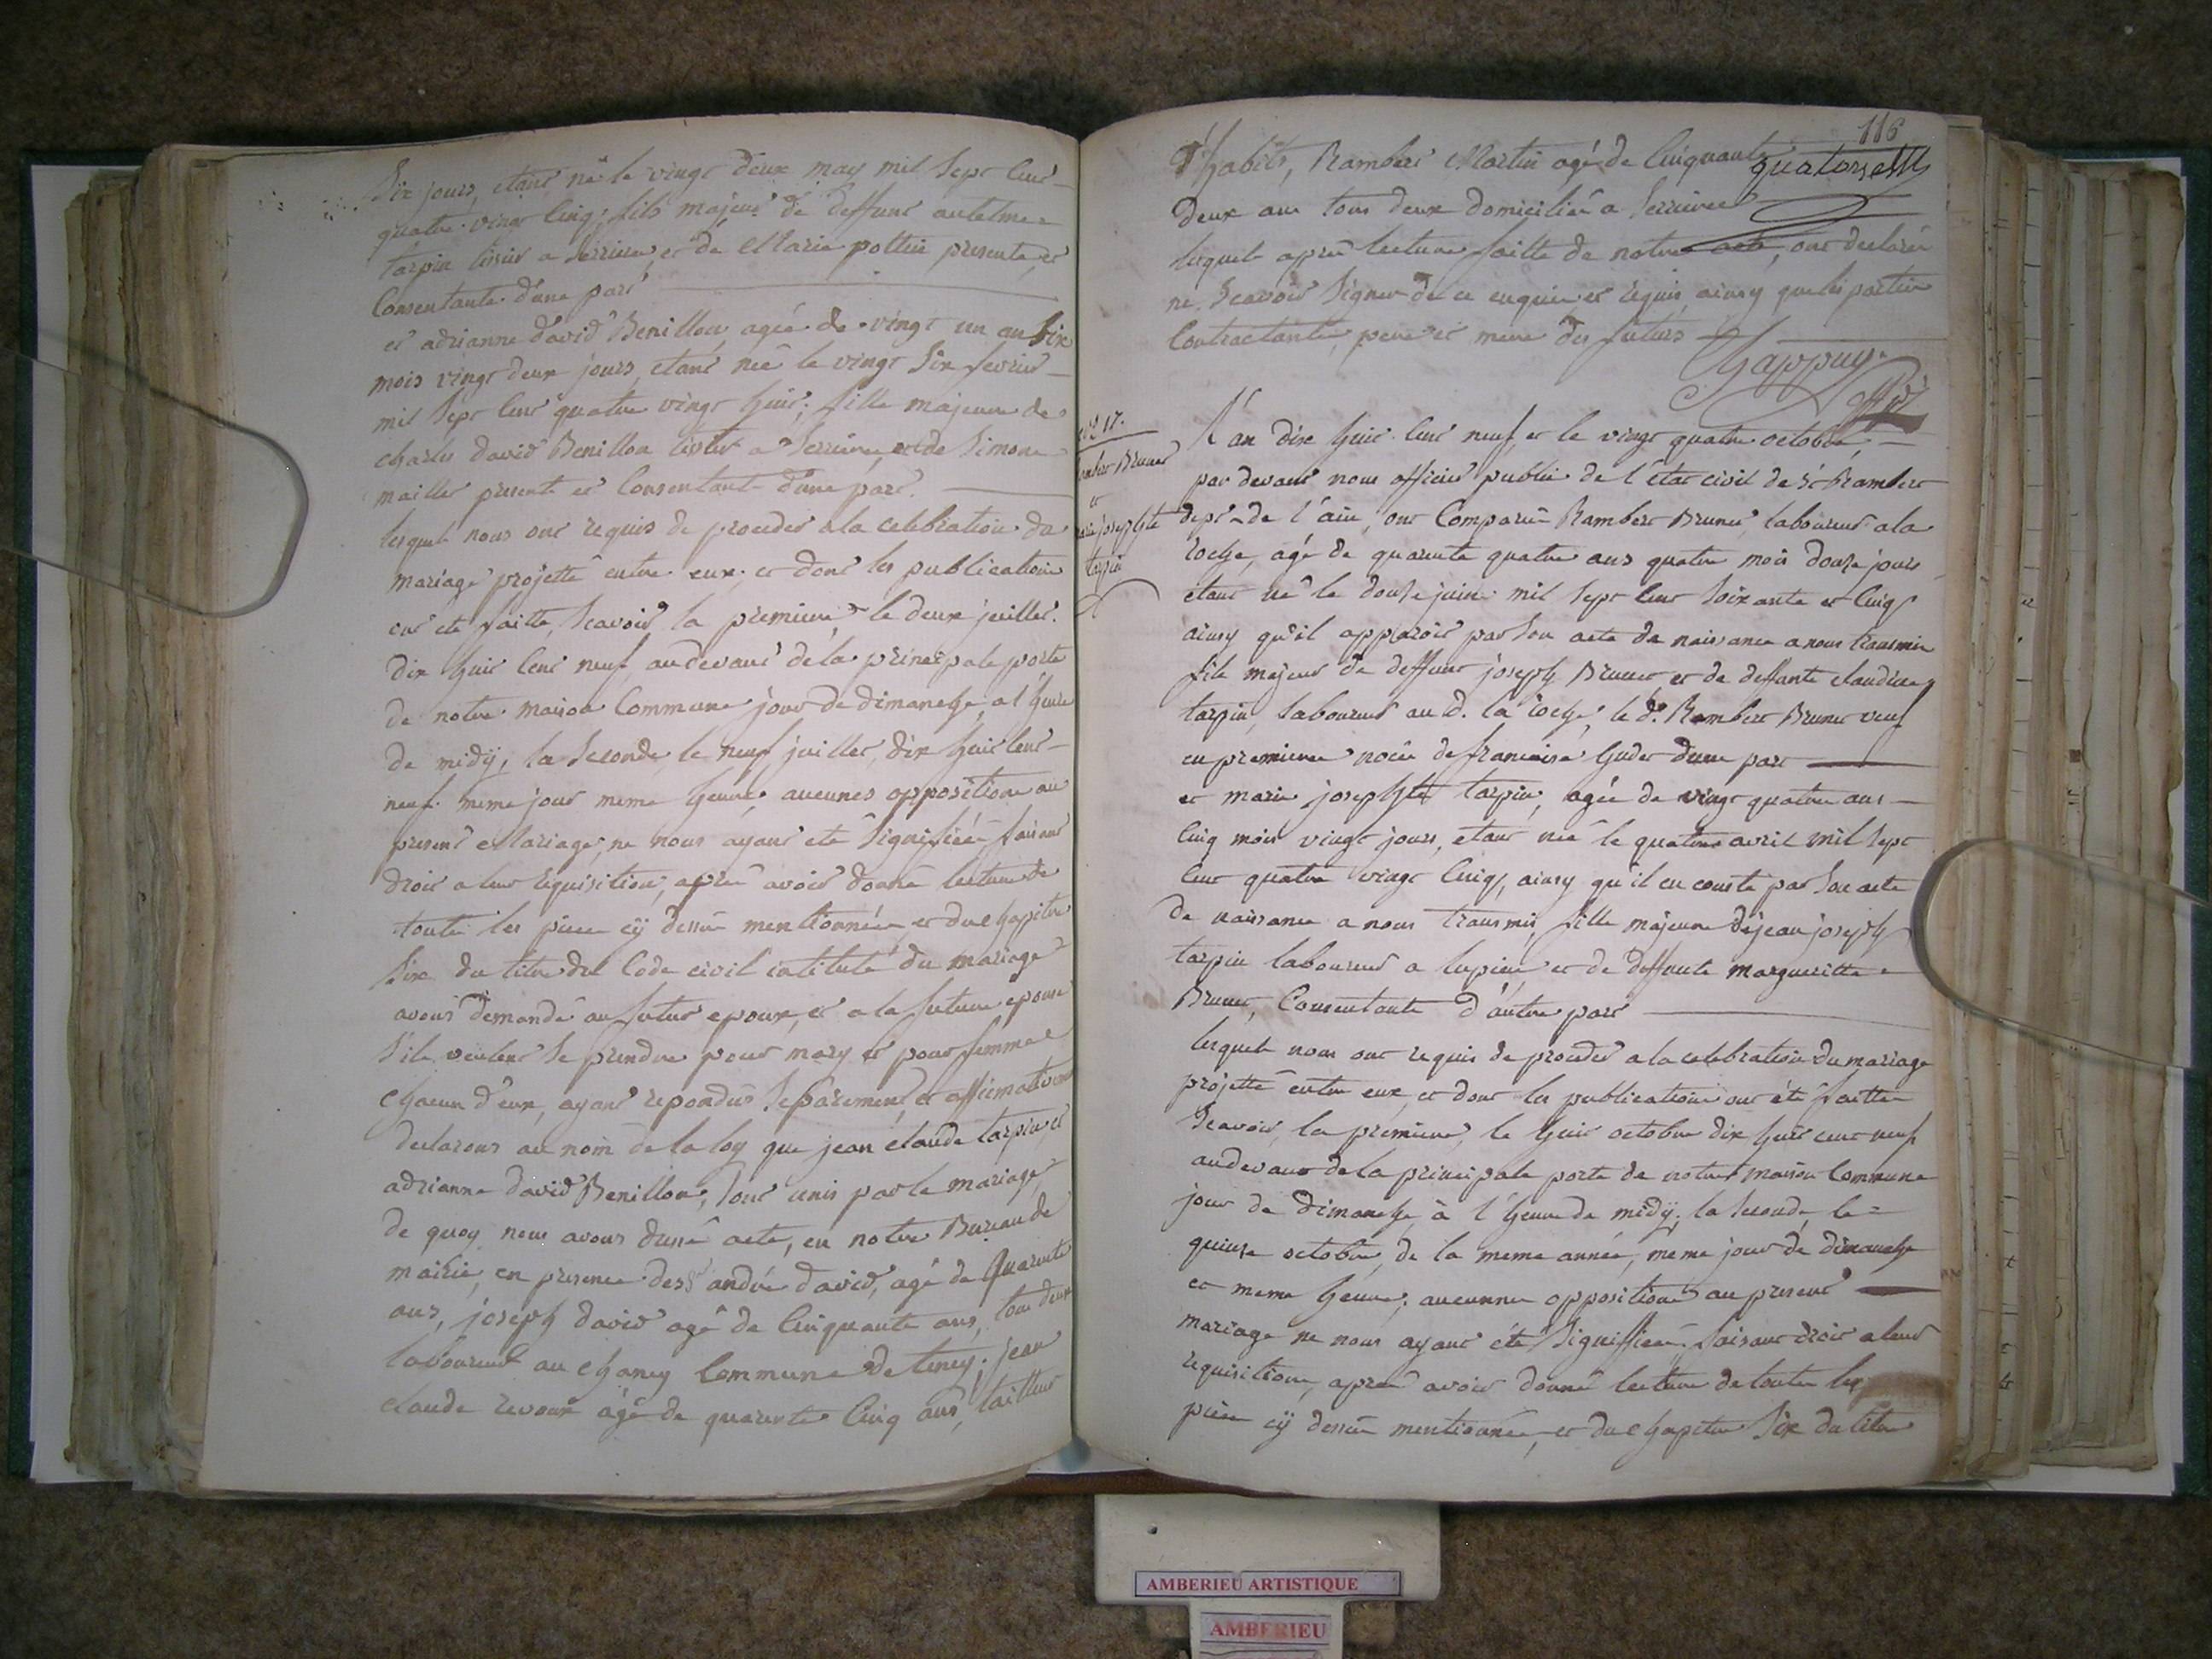 Six jours, etant né le vingt deux may mil sept cent
quatre vingt cinq; fils majeur de deffunt antelme
tarpin tissier a Serriere, et de Marie pottin presente, et
Consentante d'une part
et adrianne david Benillon, agée de vingt un an six
mois vingt deux jours, etant née le vingt six fevrier
mil sept cent quatre vingt huit; fille majeure de
charles david Benillon tissier a Serriere, et de Simone
maillet presente et Consentante d'une part.
lesquels nous ont requis de proceder a la celebration du
mariage projetté entre eux et dont les publications
ont eté faitte, Scavoir la premiere le deux juillet
dix huit cent neuf, au devant de la principale porte
de notre maison Commune jour de dimanche, a l'heure
de midÿ, la Seconde, le neuf juillet, dix huit cent
neuf meme jour meme heure, aucunes oppositions au
present Mariage, ne nous ayant eté Signifiéés faisant
droit a leur requisition, après avoir donné lecture de
toutes les pieces cÿ dessus mentionnées et du chapitre
Six du titre du Code civil intitulé du mariage
avons demandé au futur epoux, et a la future epouse
S'ils veulent Se prendre pour mary et pour femme
chacun d'eux, ayant repondus Separement, et affirmativement
declarons au nom de la loy que jean claude tarpin, et
adrianne david Benillon, Sont unis par le mariage,
de quoy nous avons dressé acte, en notre Bureau de
mairie, en presence des Srs andré david, agé de quarente
ans, joseph david agé de Cinquante ans, tous deux
laboureurs au chaney Commune de teney; jean
claude revoux agé de quarente Cinq ans, tailleur
116
quatorse
d'habits, Rambert Martin agé de Cinquante
deux ans tous deux domiciliés a Serriere
lesquels après lecture faitte de notre acte, ont declarés
ne Scavoir Signer de ce enquis et requis, ainsy que les parties
Contractantes, pere et mere des futurs
Chappuy
No 17.
Rambert Brunet
et
marie josephte
tarpin
L'an dix huit cent neuf, et le vingt quatre octobre,
par devant nous officier public de l'état civil de St Rambert
dept de l'ain, ont Comparûs Rambert Brunet laboureur a la
roche, agé de quarente quatre ans quatre mois douse jours
etant né le douse juin mil sept cent soixante et cinq
ainsy qu'il apparoit par son acte de naissance a nous transmis
fils majeur de deffunt joseph Brunet et de deffunte claudine
tarpin, laboureur au d. la roche, le dt Rambert Brunet veuf
en premieres noces de francoise Guder d'une part
et marie josephte tarpin, agée de vingt quatre ans
Cinq mois vingt jours, etant née le quatre avril mil sept
cent quatre vingt Cinq, ainsy qu'il en conste par son acte
de naissance a nous transmis, fille majeure de jean joseph
tarpin laboureur a lupieu et de deffunte margueritte
Brunet, Consentante d'autre part
lesquels nous ont requis de proceder a la celebration du mariage
projetté entre eux, et dont les publications ont été faittes
Scavoir, la premiere, le huit octobre dix huit cent neuf
au devant de la principale porte de notre maison Commune
jour de dimanche à l'heure de midÿ; la Seconde, le
quinse octobre, de la meme année, meme jour de dimanche
et meme heure; aucunnes oppositions au present
mariage ne nous ayant été Signiffiées faisant droit a leur
requisition, après avoir donné lecture de toutes les
pieces cÿ dessus mentionnées, et du chapitre Six du titre
AMBERIEU ARTISTIQUE
AMBERIEU